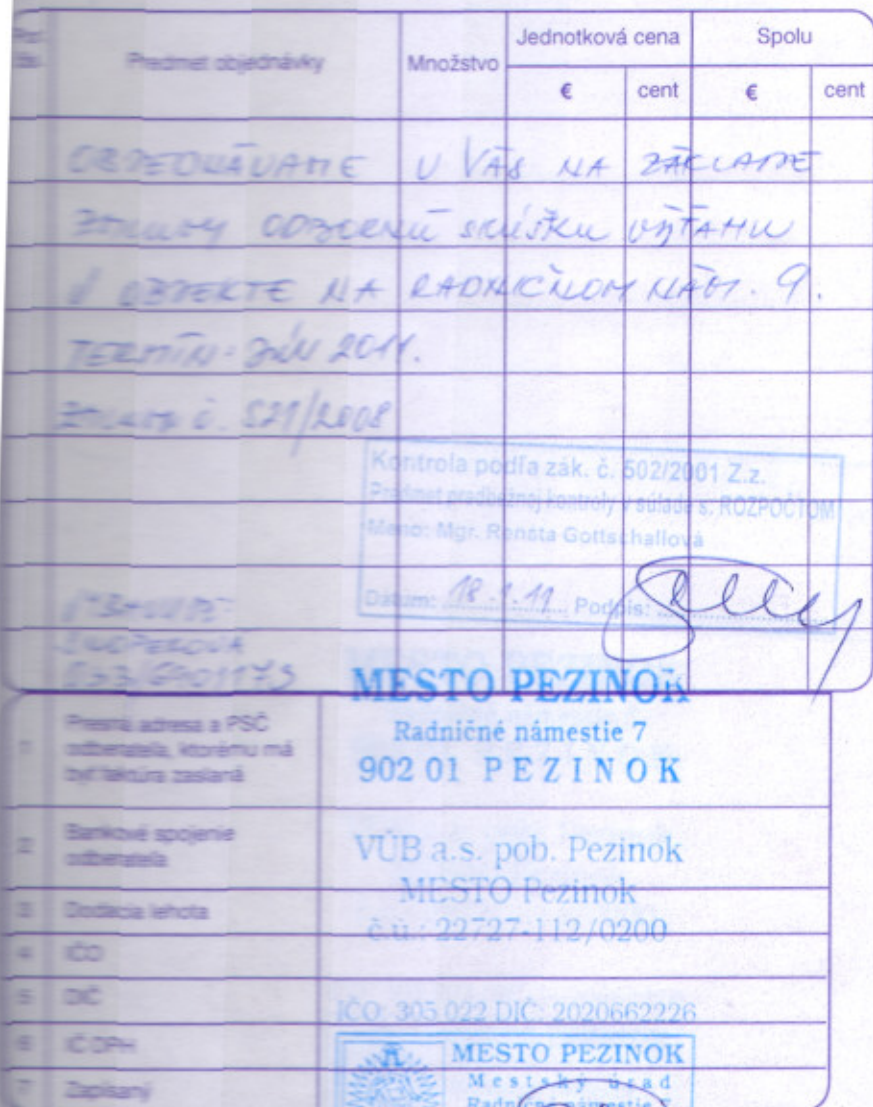 Predmet objednávky Množstvo Jednotková cena Spolu
€ cent € cent
OBJEDNÁVAME U VÁS NA ZÁKLADE
ZMLUVY ODBORNÚ SKÚŠKU VÝŤAHU
V OBJEKTE NA RADNIČNOM NÁM. 9.
TERMÍN: JÚN 2011.
ZMLUVA č. 521/2008
Kontrola podľa zák. č. 502/2001 Z.z.
Predmet predbežnej kontroly v súlade s. ROZPOČTOM
Meno: Mgr. Renata Gottschallová
Dátum: 18.1.11 Podpis:
033/6901173
MESTO PEZINOK
Radničné námestie 7
902 01 PEZINOK
1 Presná adresa a PSČ
odberateľa, ktorému má
byť faktúra zaslaná
2 Bankové spojenie
odberateľa
VÚB a.s. pob. Pezinok
MESTO Pezinok
č.ú.: 22727-112/0200
3 Dodacia lehota
4 IČO
5 DIČ
IČO: 305 022 DIČ: 2020662226
6 IČ DPH
7 Zapísaný
MESTO PEZINOK
Mestský úrad
Radničné námestie 7